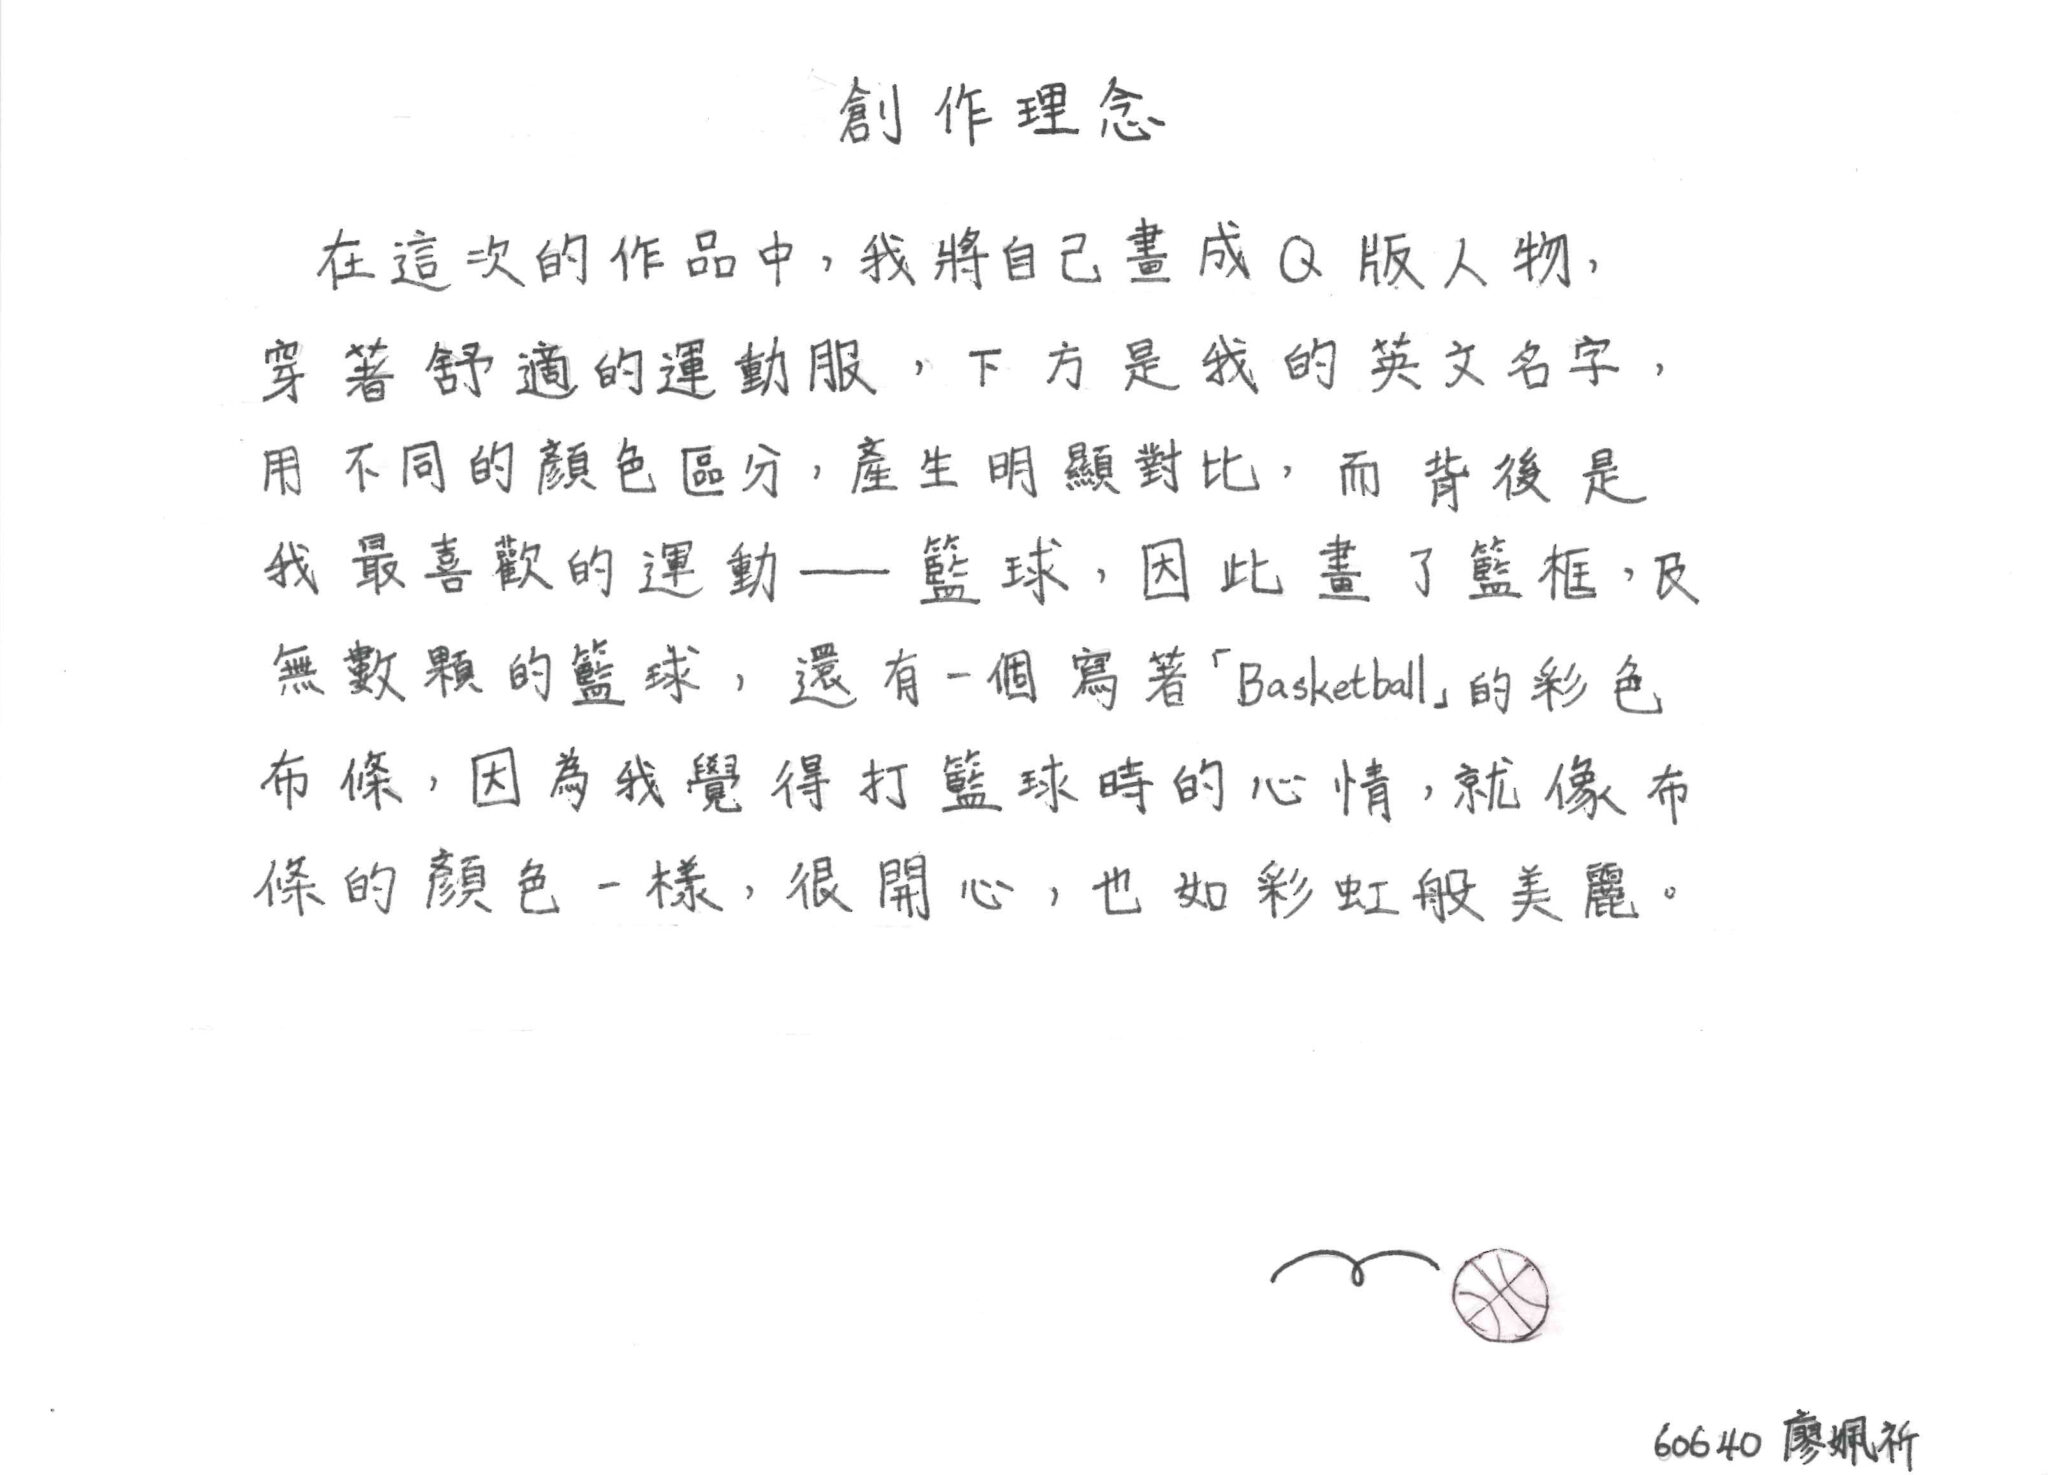 創作理念
在這次的作品中，我將自己畫成Q版人物，
穿著舒適的運動服，下方是我的英文名字，
用不同的顏色區分，產生明顯對比，而背後是
我最喜歡的運動——籃球，因此畫了籃框，及
無數顆的籃球，還有一個寫著「Basketball」的彩色
布條，因為我覺得打籃球時的心情，就像布
條的顏色一樣，很開心，也如彩虹般美麗。
60640 廖姵祈